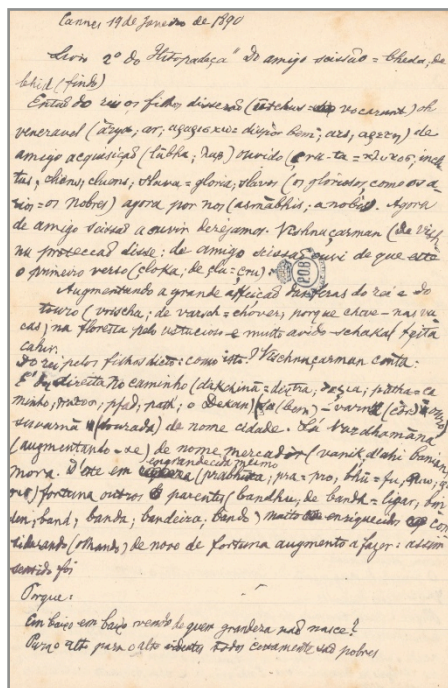 Cannes 19 de Janeiro de 1890
Livro 2º do Hitopadeça" Do amigo scissão = bheda, de
bhid (findo)
Então do rei os filhos disserão vocarunt) oh
veneravel (ârya, ar, dispor bem; ars, ) de
amigo acquisição (lâbha; ) ouvido (çru-ta = incly-
tus, cluens, slava = gloria, slavos (os gloriosos, como os a
rios = os nobres) agora por nós (asmâbhis, a nobis). Agora
de amigo scissão a ouvir desejamos. Vischnuçarman (de Vis-
nu protecção) disse: de amigo scissão ouvi de que este
o primeiro verso (çloka, de çlu = çru)
Augmentando a grande affeição das feras do rei e do
touro (vrischa; de varsch = chover, porque chove nas va
cas) na floresta pelo astucioso e muito avido schakal feita
cahir.
Do rei pelos filhos dicto: como isto? Vischnuçarman conta:
direita no caminho (dakchinâ = dextra; patha = ca
minho; pfad, path; o Dekan) (bom) varna (côr)
suvarnâ (dourada) de nome cidade. Lá Vardhamâna
(augmentando-se) de nome mercador (vanik d'ahi banian)
mora. D'este em (prabhûta; pra = pro, bhû = fu, )
fortuna outros parentes (bandhu, de bandh = ligar, bin
den, band, banda, bandeira, bando) muito enriquecidos con
siderando (olhando) de novo de fortuna augmento a fazer: assim
sentido foi
Porque:
Em baixo em baixo vendo de quem grandeza não nasce?
Para o alto para o alto todos certamente são pobres